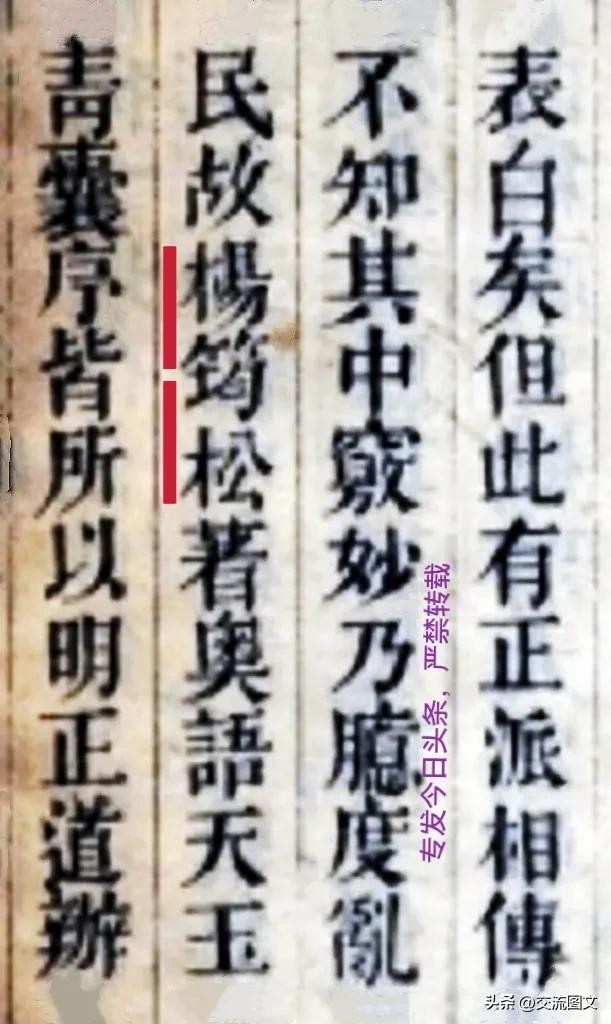 表白矣但此有正派相傳
不知其中竅妙乃臆度亂
民故楊筠松著奥語天玉
青囊序皆所以明正道辦
专发今日头条，严禁转载
头条 @交流图文